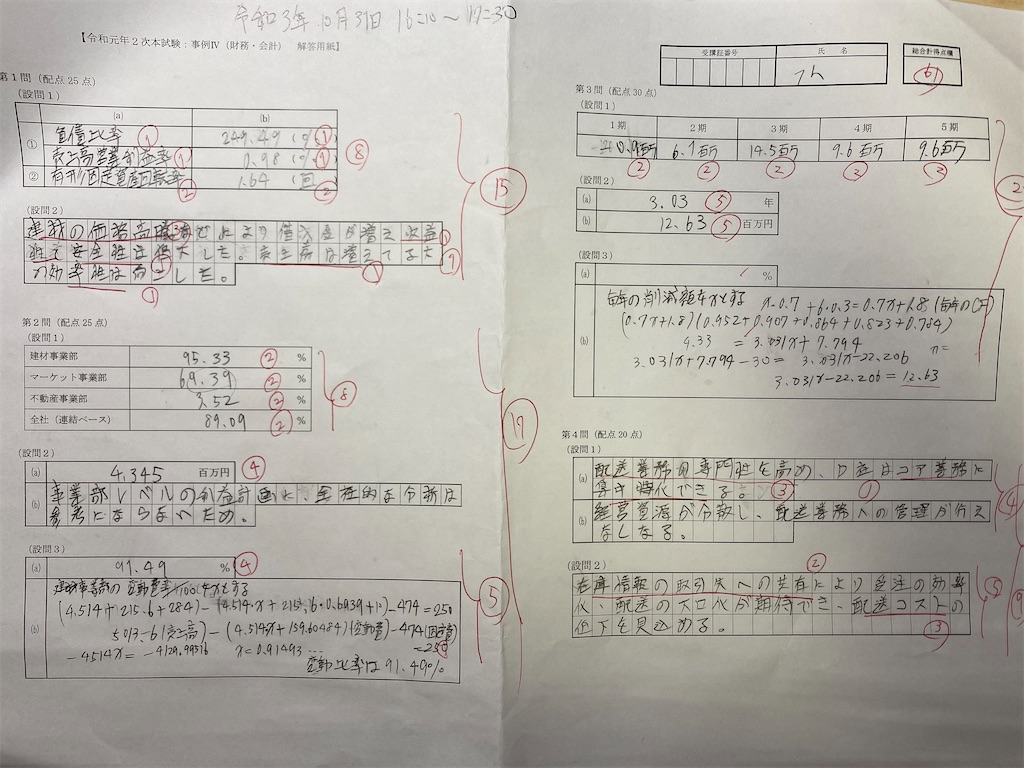 令和3年 10月31日 16:10 〜 17:30
【令和元年2次本試験:事例Ⅳ(財務・会計) 解答用紙】
第1問(配点25点)
(設問1)
(a) (b)
① 負債比率 ① 249.49 (%) ①
売上高営業利益率 ① 0.98 (%) ①
② 有形固定資産回転率 ② 1.64 (回) ②
⑧
(設問2)
により借入金が増え収益
性と安全性は した。売上高は増えてるた
の効率性は した。
⑦
⑮
第2問(配点25点)
(設問1)
建材事業部 95.33 ② %
マーケット事業部 69.39 ② %
不動産事業部 3.52 ② %
全社(連結ベース) 89.09 ② %
⑧
(設問2)
(a) 4.345 百万円 ④
(b) 事業部レベルの利益計画に、全社的な分析は
参考にならないため。
(設問3)
(a) 91.49 % ④
(b) 建材事業部の変動費率 をxとする
(4.514+215.6+284)-(4.514x+215.6・0.6939+10)-474=250
5013.6(売上高)-(4.514x+159.60484)(変動費)-474(固定費)
=250
-4514x=-4129.99516 x=0.91493…
変動比率は91.49%
⑤
⑰
受講証番号 氏名
総合計得点欄
61
第3問(配点30点)
(設問1)
1期 2期 3期 4期 5期
0.9百万 6.1百万 14.5百万 9.6百万 9.6百万
② ② ② ② ②
(設問2)
(a) 3.03 ⑤ 年
(b) 12.63 ⑤ 百万円
(設問3)
(a) %
(b) 毎年の削減額をxとする x・0.7+6・0.3=0.7x+1.8(毎年のCF)
(0.7x+1.8)(0.952+0.907+0.864+0.823+0.784)
4.33 =3.031x+7.794
3.031x+7.794-30=3.031x-22.206 x=
3.031x-22.206=12.63
第4問(配点20点)
(設問1)
(a) 配送業務の専門性を高め、D社はコア業務に
できる。 ③ ①
(b) 経営資源が分散し、配送業務への管理が行え
なくなる。
④
(設問2)
②
在庫情報の取引先への共有により受注の効率
化、配送の大口化が期待でき、配送コストの
低下を見込める。 ③
⑤
⑨